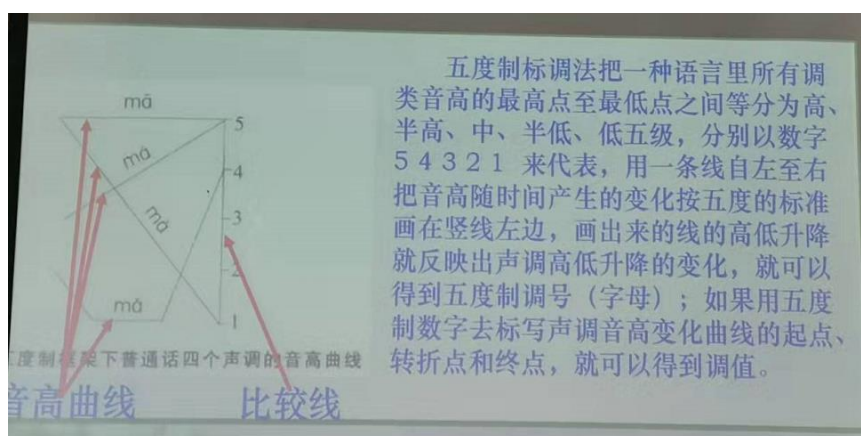 mā
5
má
4
mà
3
2
mǎ
1
度制框架下普通话四个声调的音高曲线
音高曲线
比较线
五度制标调法把一种语言里所有调
类音高的最高点至最低点之间等分为高、
半高、中、半低、低五级，分别以数字
5 4 3 2 1 来代表，用一条线自左至右
把音高随时间产生的变化按五度的标准
画在竖线左边，画出来的线的高低升降
就反映出声调高低升降的变化，就可以
得到五度制调号（字母）；如果用五度
制数字去标写声调音高变化曲线的起点、
转折点和终点，就可以得到调值。